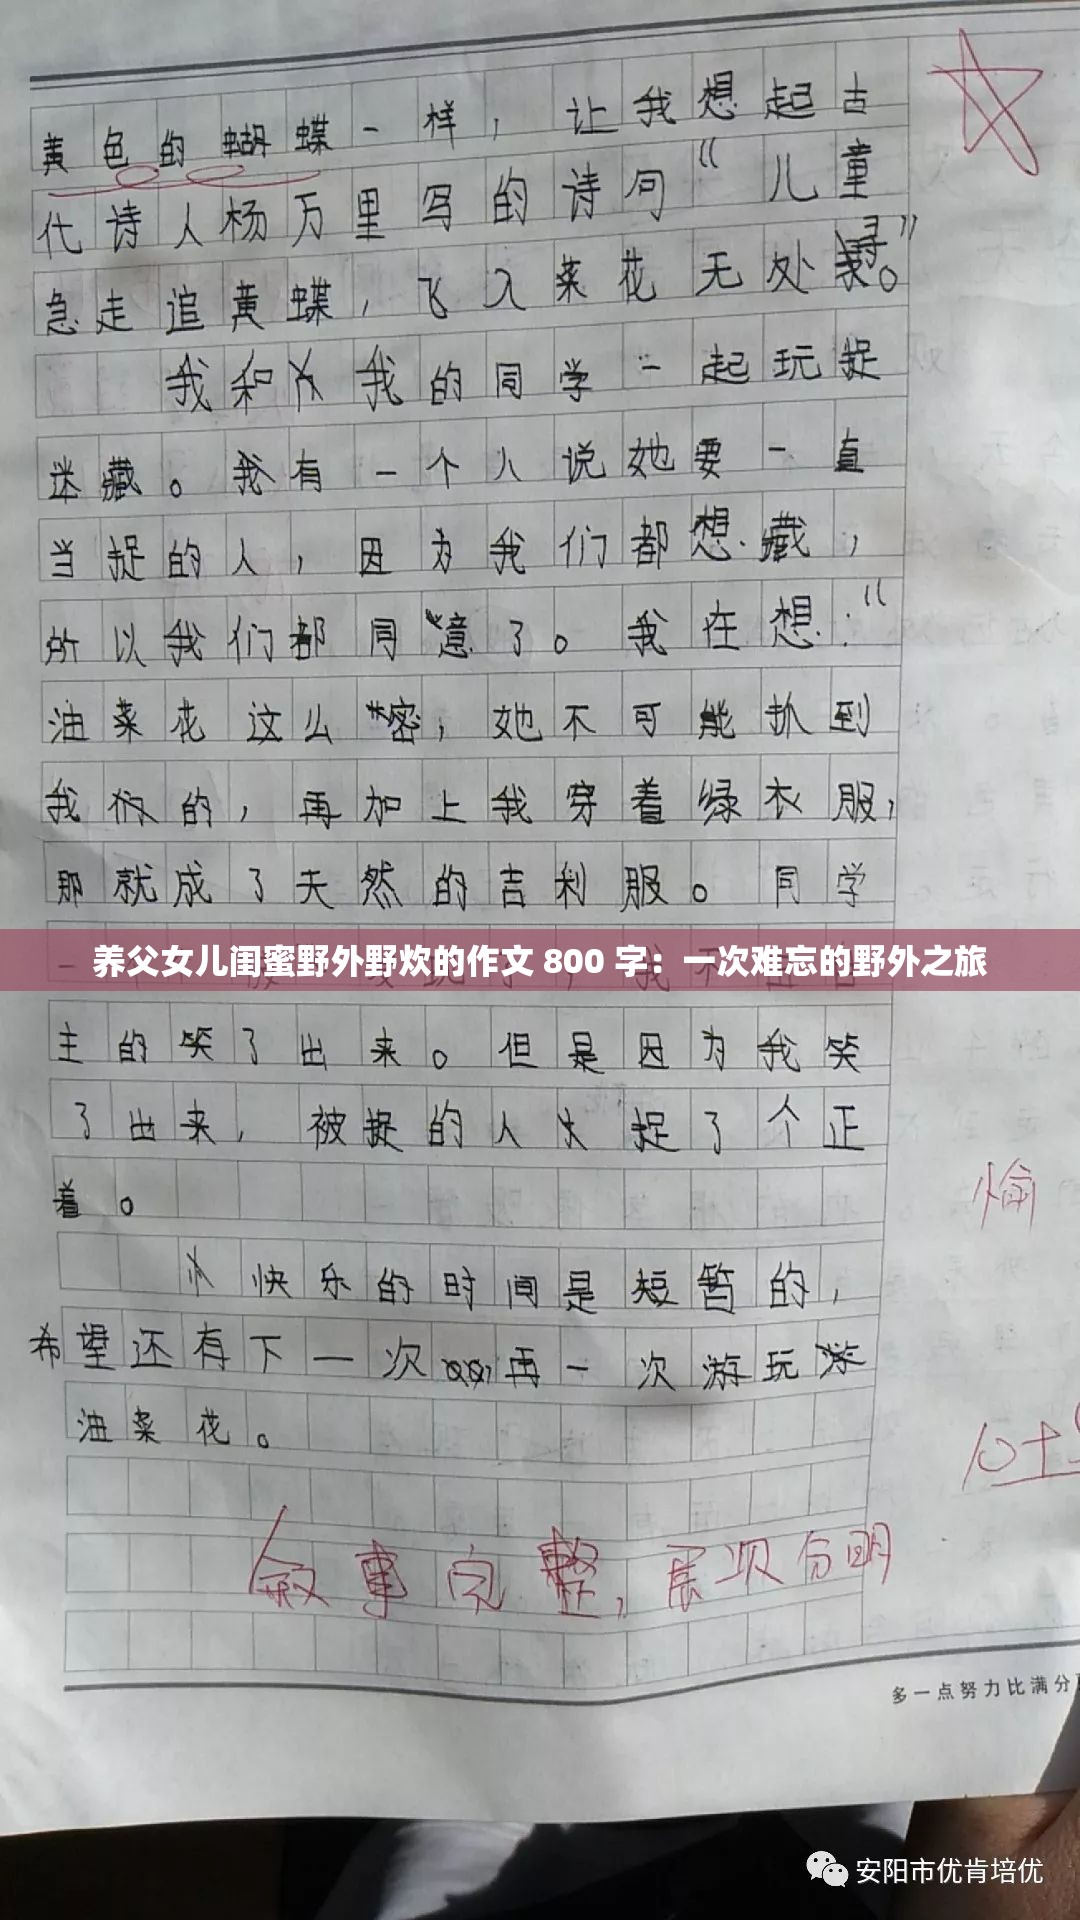 黄色的蝴蝶一样，让我想起古
代诗人杨万里写的诗句“儿童
急走追黄蝶，飞入菜花无处寻”。
我和我的同学一起玩捉
迷藏。我有一个人说她要一直
当捉的人，因为我们都想藏，
所以我们都同意了。我在想：“
油菜花这么密，她不可能扒到
我们的，再加上我穿着绿衣服，
那就成了天然的吉利服。同学
养父女儿闺蜜野外野炊的作文 800 字：一次难忘的野外之旅
主的笑了出来。但是因为我笑
了出来，被捉的人捉了个正
着。
快乐的时间是短暂的，
希望还有下一次再一次游玩
油菜花。
愉
10+
叙事完整，层次分明
多一点努力比满分
安阳市优肯培优